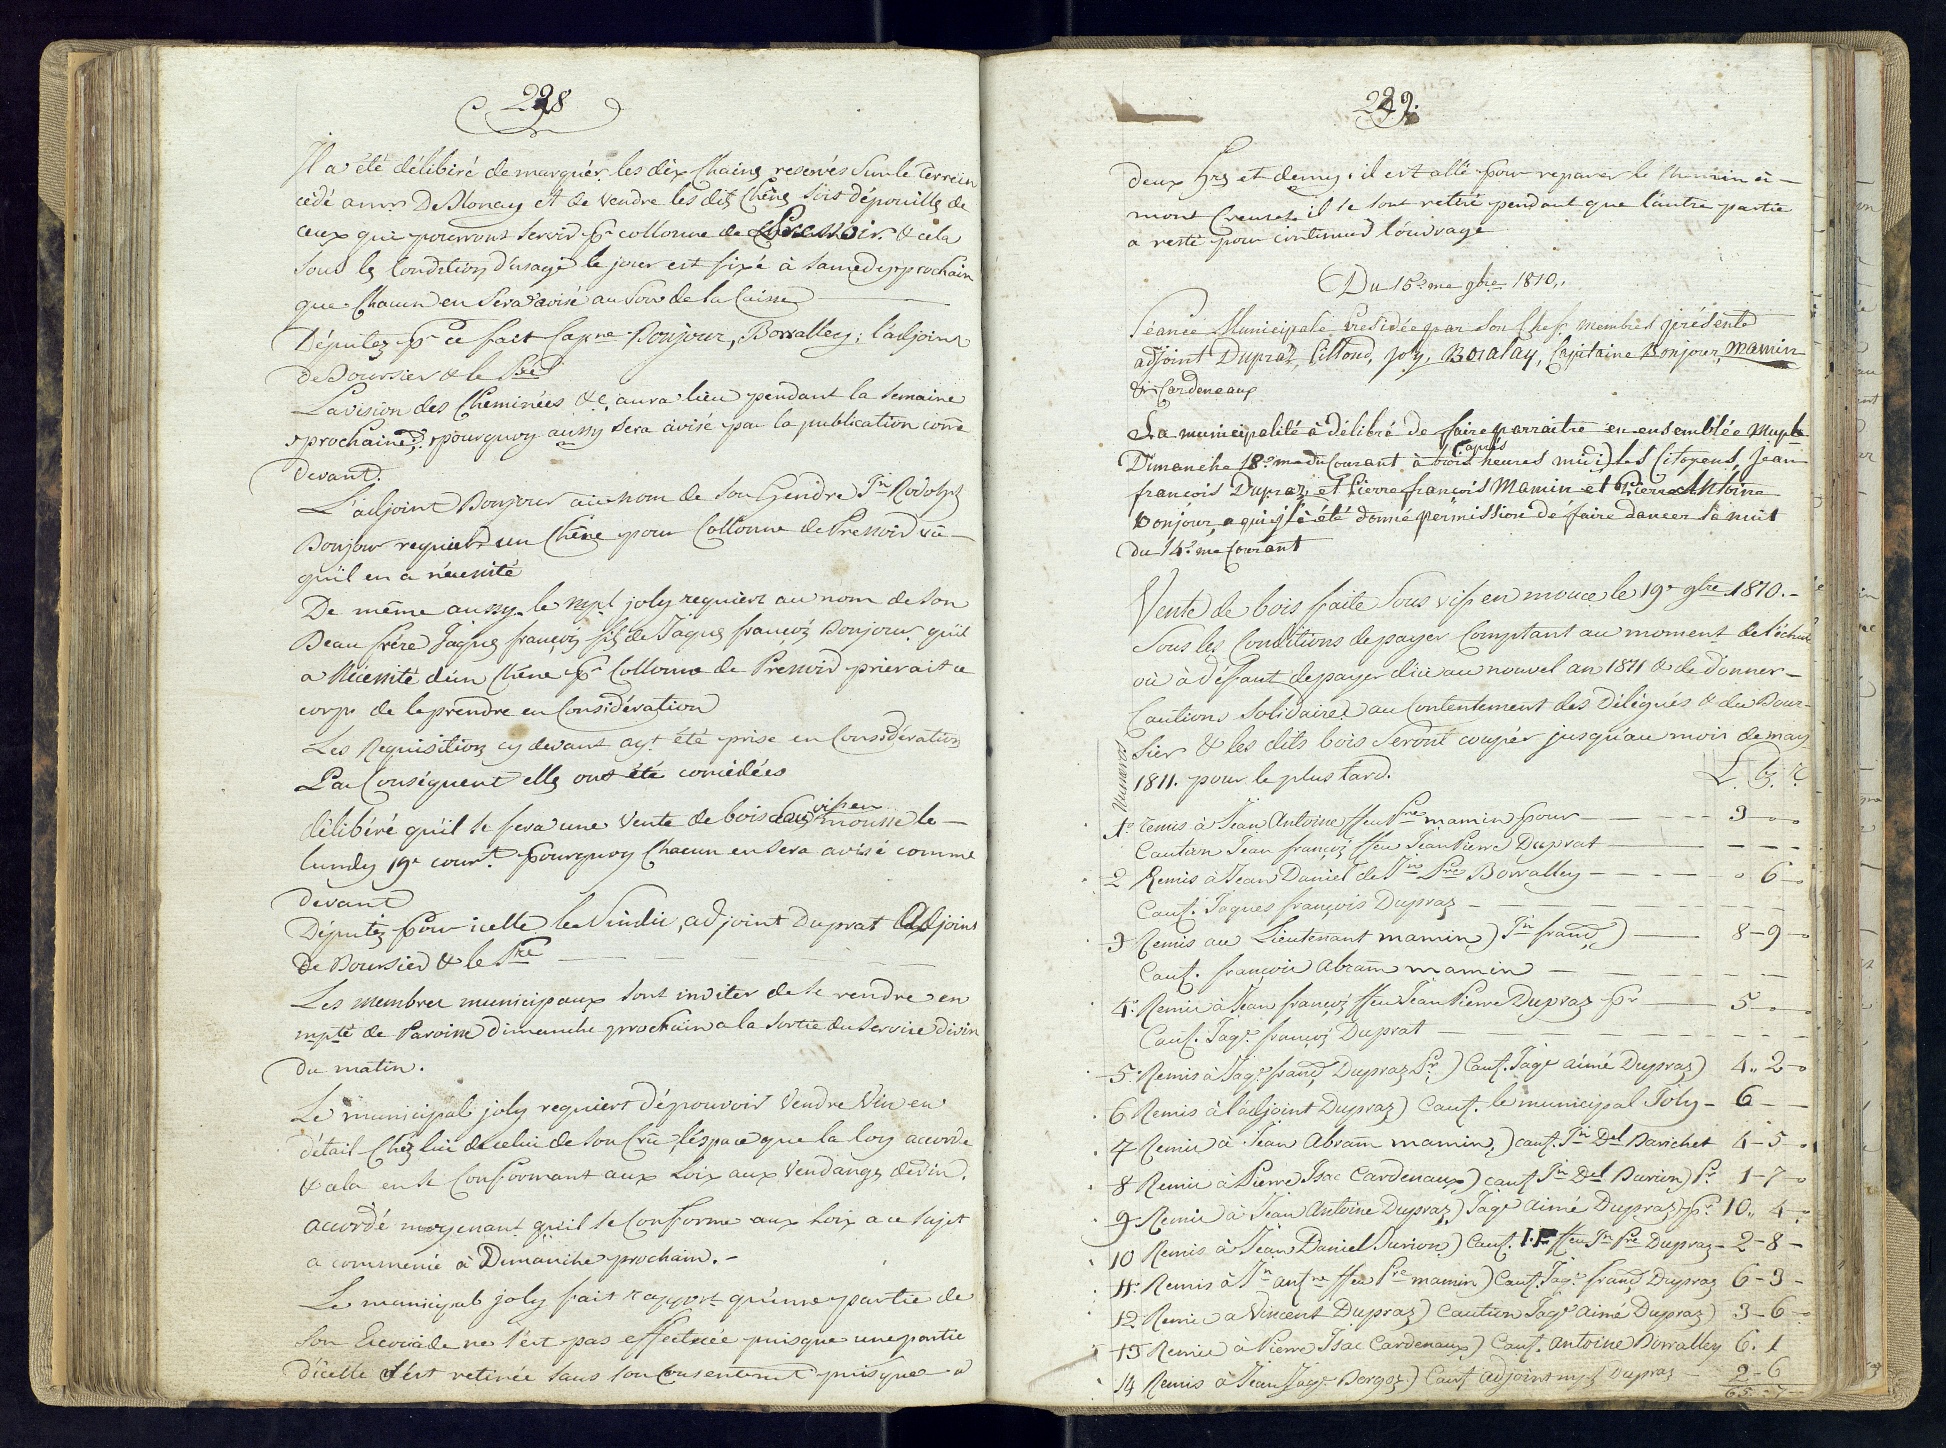 228
Il a été délibéré de marquér les dix Chains reservés Sur le terrein
cédé a mr De Blonay et de vendre les dits Chêne Soit dépouille de
ceux qui pourront Servir pr collonne de Pressoir & cela
Sous les Condition d'usage le jour est fixé à Samedy prochain
que Chacun en Sera avisé au Son de la Caisse
Députez pr ce fait Capne Bonjour, Borralley, l'adjoint
de Boursier & le Sre
La vision des Cheminées &c, aura lieu pendant la Semaine
prochaine, pourquoy aussy Sera avisé par la publication come
devant.
L'adjoint Bonjour au nom de Son Gendre Jn Rodolph
Bonjour requiert un Chêne pour Collonne de Pressoir vû
qu'il en a nécessité
De même aussy le mpl joly requiert au nom de Son
Beau frére Jaques françois fils de Jaques françois Bonjour qu'il
a Nécessité d'un Chêne pr Collonne de Pressoir prierait ce
corps de le prendre en Considération
Les Requisition cy devant ayt été prise en Considération
Par Conséquent elles ont été concédées
délibéré qu'il se fera une vente de bois Sous vifs en mousse le
lundy 19e court. pourquoy Chacun en Sera avisé comme
devant
Députéz pour icelle le Sindic, adjoint Duprat Adjoint
De Boursier & le Sre
Les membres municipaux Sont inviter de Se rendre en
mpté de Paroisse dimanche prochain a la Sortie du Service divin
du matin.
Le municipal joly requiert d'épouvoir Vendre Vin en
détail Chéz lui de celui de Son Crû, l'éspace que la loy accorde
& cela en se Conformant aux Loix aux Vendanges dudin.
accordé moyenant qu'il Se Conforme aux Loix a ce Sujet
a commencé à Dimanche prochain.
Le municipal joly fait rapport qu'une partie de
Son Escouade ne s'est pas effectuée puisque une partie
d'icelle s'est retirée Sans Son Consentement puisque a
229.
deux hrs et demy; il est allé pour reparer le Chemin à
mont Creuset, il se sont retiré pendant que l'autre partie
a resté pour continuer l'ouvrage
Du 15me 9bre 1810.
Séance Municipale Présidée par Son Chef. membres présents
adjoint Dupraz, Pilloud, joly, Boralay, Capitaine Bonjour, Mamin
& Cardeneaux
La municipalité à délibré de faire parraitre en ensemblée Muple
Dimanche 18me du Courant à trois heures (après midi) les Citoyens Jean
françois Dupraz, et Pierre françois Mamin et Pierre Antoine
Bonjour, a qui il a été donné permission de faire dancer La nuit
du 14me Courant
Vente de bois faite Sous vifs en mouce le 19e 9bre 1810.
Sous les Conditions de payer Comptant au moment de l'échute
où à déffaut de payer d'ici au nouvel an 1811 & de donner
Cautions Solidaires au Contentement des Délégués & du Bour-
sier & les dits bois Seront coupér jusqu'au mois de may
1811. pour le plus tard.
Numeros
L. bz. r.
1o remis à Jean Antoine ffeu Pre mamin pour — 3
Caution Jean françois ffeu Jean Pierre Duprat
2 Remis à Jean Daniel de Jn Pre Borralley — 6
Caut. Jaques françois Dupraz
3 Remis au Lieutenant mamin) Jn franç) — 8-9
Caut. françois Abram mamin
4o Remis à Jean françois ffeu Jean Pierre Dupraz pr — 5
Caut. Jaqs françois Duprat
5o Remis à Jaqs franç Dupraz Sr) Caut. Jaqs aimé Dupraz) 4.. 2
6 Remis à l'adjoint Dupraz) Caut. le municipal Joly - 6
7 Remis à Jean Abram mamin) caut. Jn Del Barichet 4-5
8 Remis à Pierre Isac Cardenaux) caut Jn Del Durion) Pr 1-7
9 Remis à Jean Antoine Dupraz) Jaqs aimé Dupraz) pr 10.. 4
10 Remis à Jean Daniel Durion) Caut. ffeu Jn Pre Dupraz - 2-8
11o Remis à Jn antne ffeu Pre mamin) Caut. Jaqs franç Dupraz 6-3
12 Remis a Vincent Dupraz) Caution Jaqs aimé Dupraz) 3-6
13 Remis à Pierre Isac Cardenaux) Caut. antoine Borralley 6. 1
14 Remis à Jean Jaqs Borgoz) Caut adjoint mpl Dupraz - 2-6
65-7